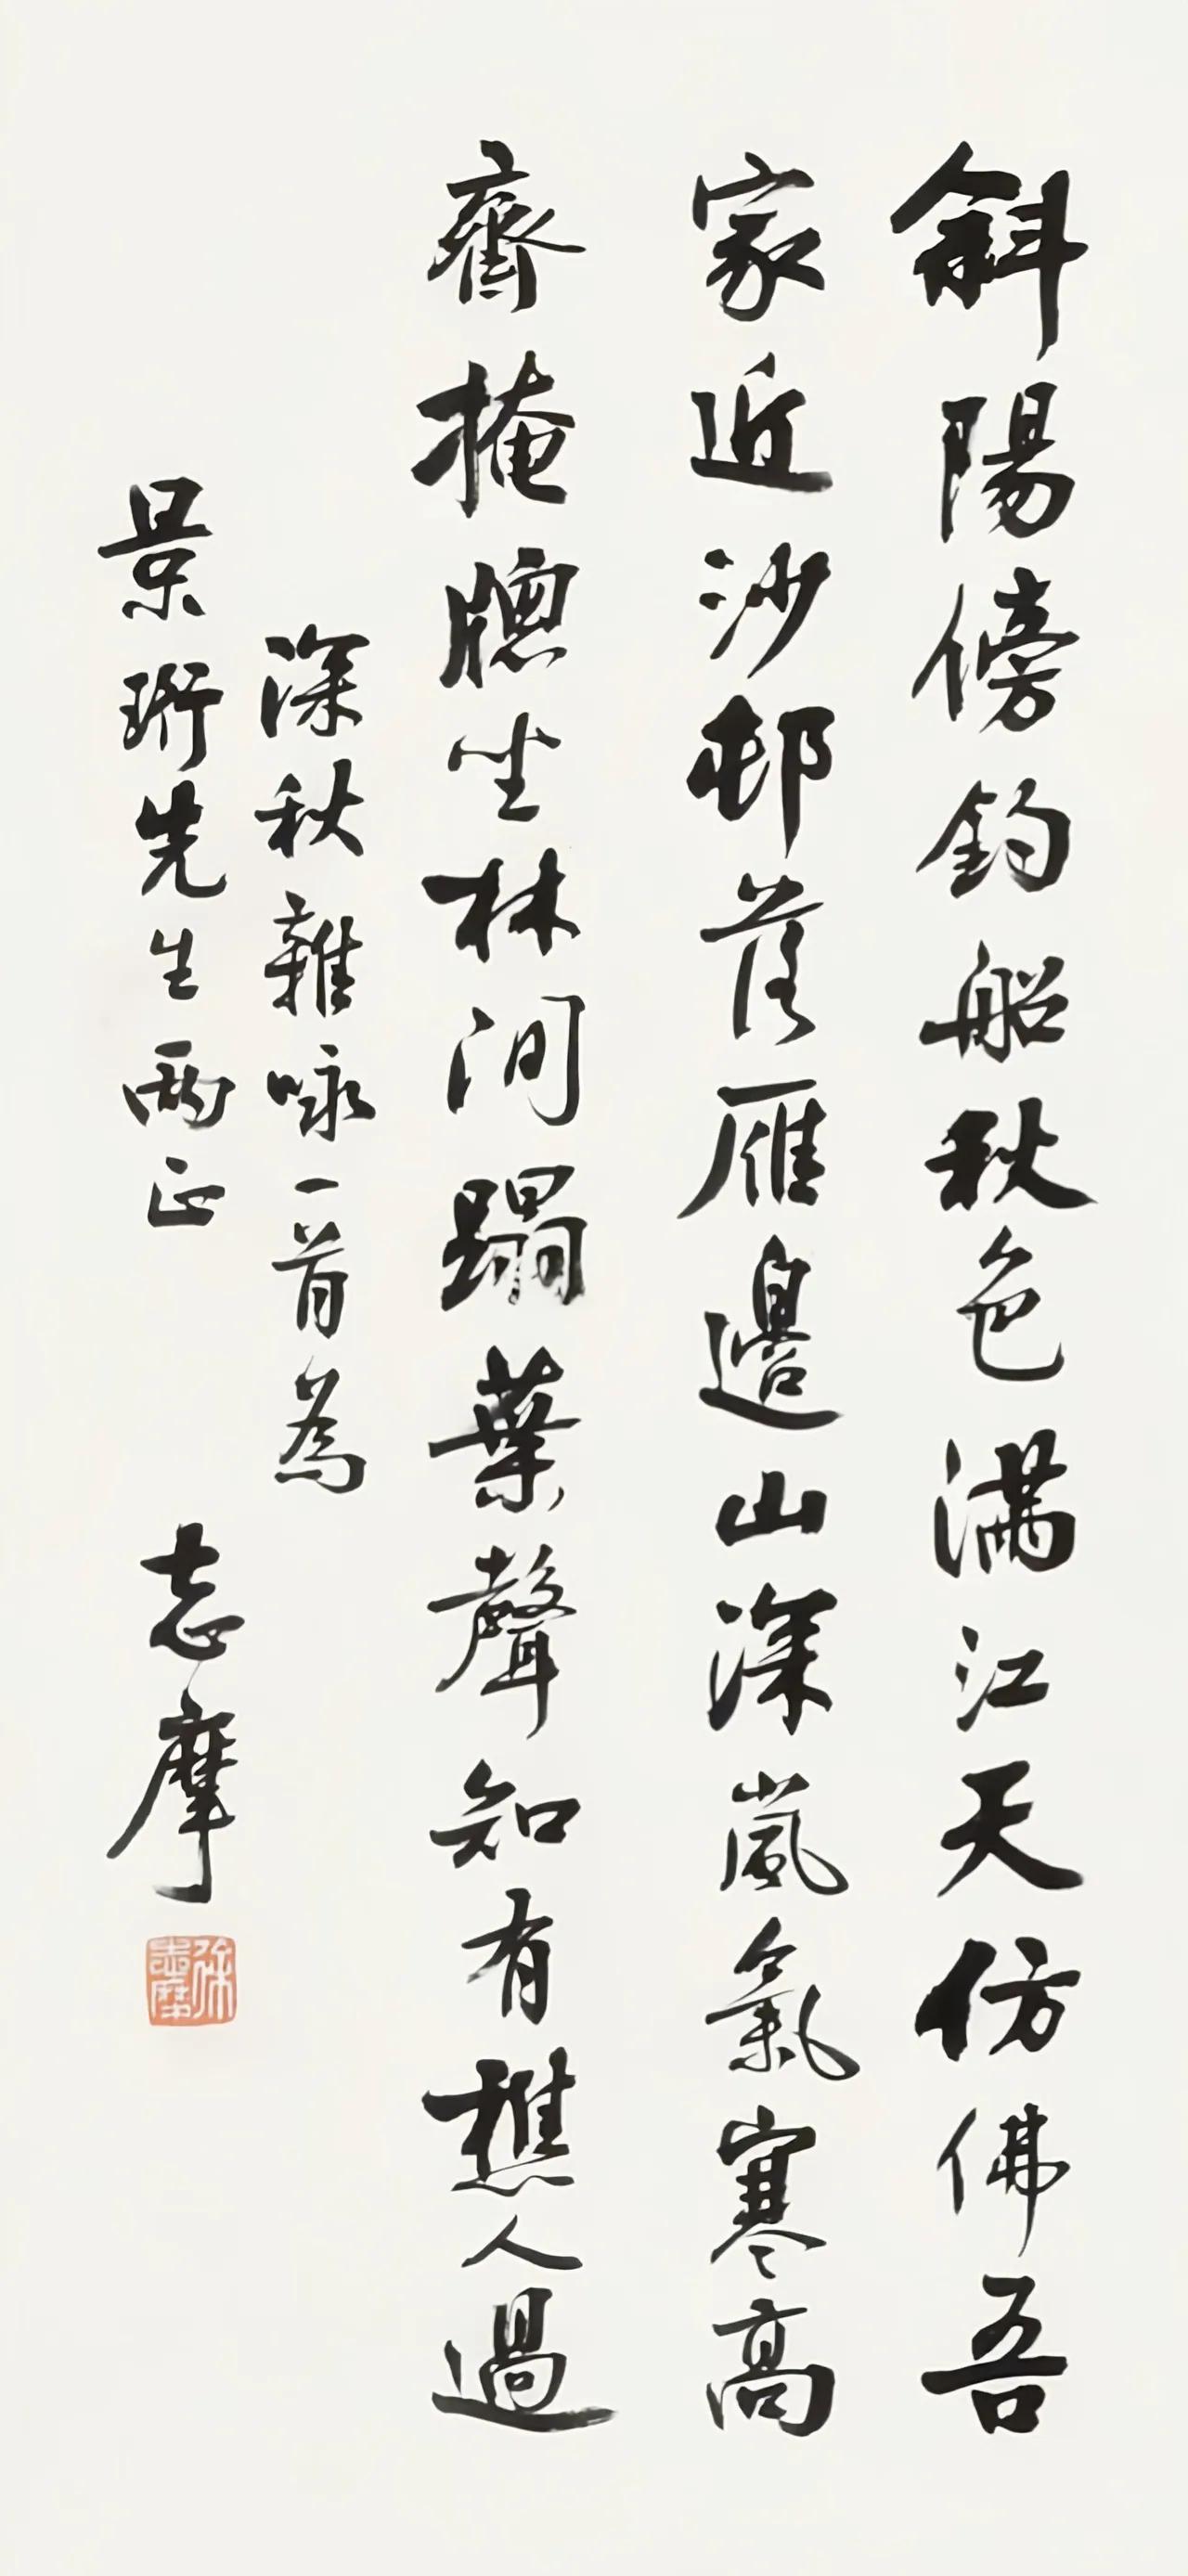 斜陽傍釣船秋色滿江天仿佛吾
家近沙邨落雁邊山深嵐氣寒高
齋掩牕坐林間蹋葉聲知有樵人過
深秋雜咏一首為
景珩先生兩正
志摩
徐志摩